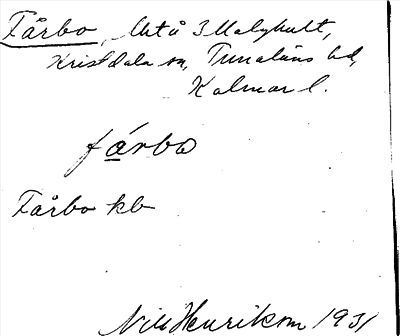 Fårbo, Utä 3 Malghult,
Kristdala sn, Tunaläns hd,
Kalmar l.
fårbo
Fårbo kb
Nils Henrikson 1931